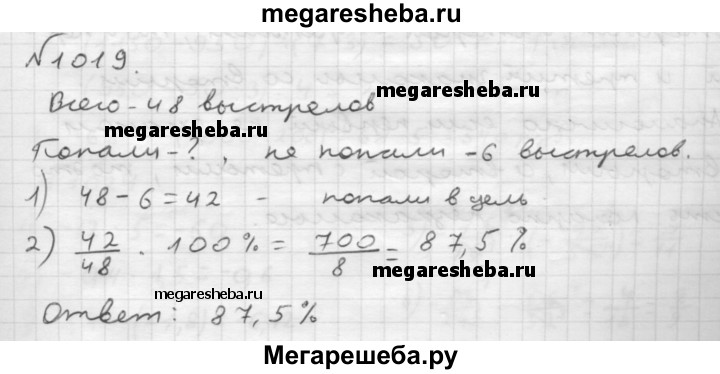 megaresheba.ru
№1019.
Всего - 48 выстрелов
megaresheba.ru
megaresheba.ru
Попали - ? , не попали - 6 выстрелов.
1) 48 - 6 = 42 - попали в цель
2) 42/48 · 100% = 700/8 = 87,5%
megaresheba.ru
megaresheba.ru
Ответ: 87,5%
Мегарешеба.ру